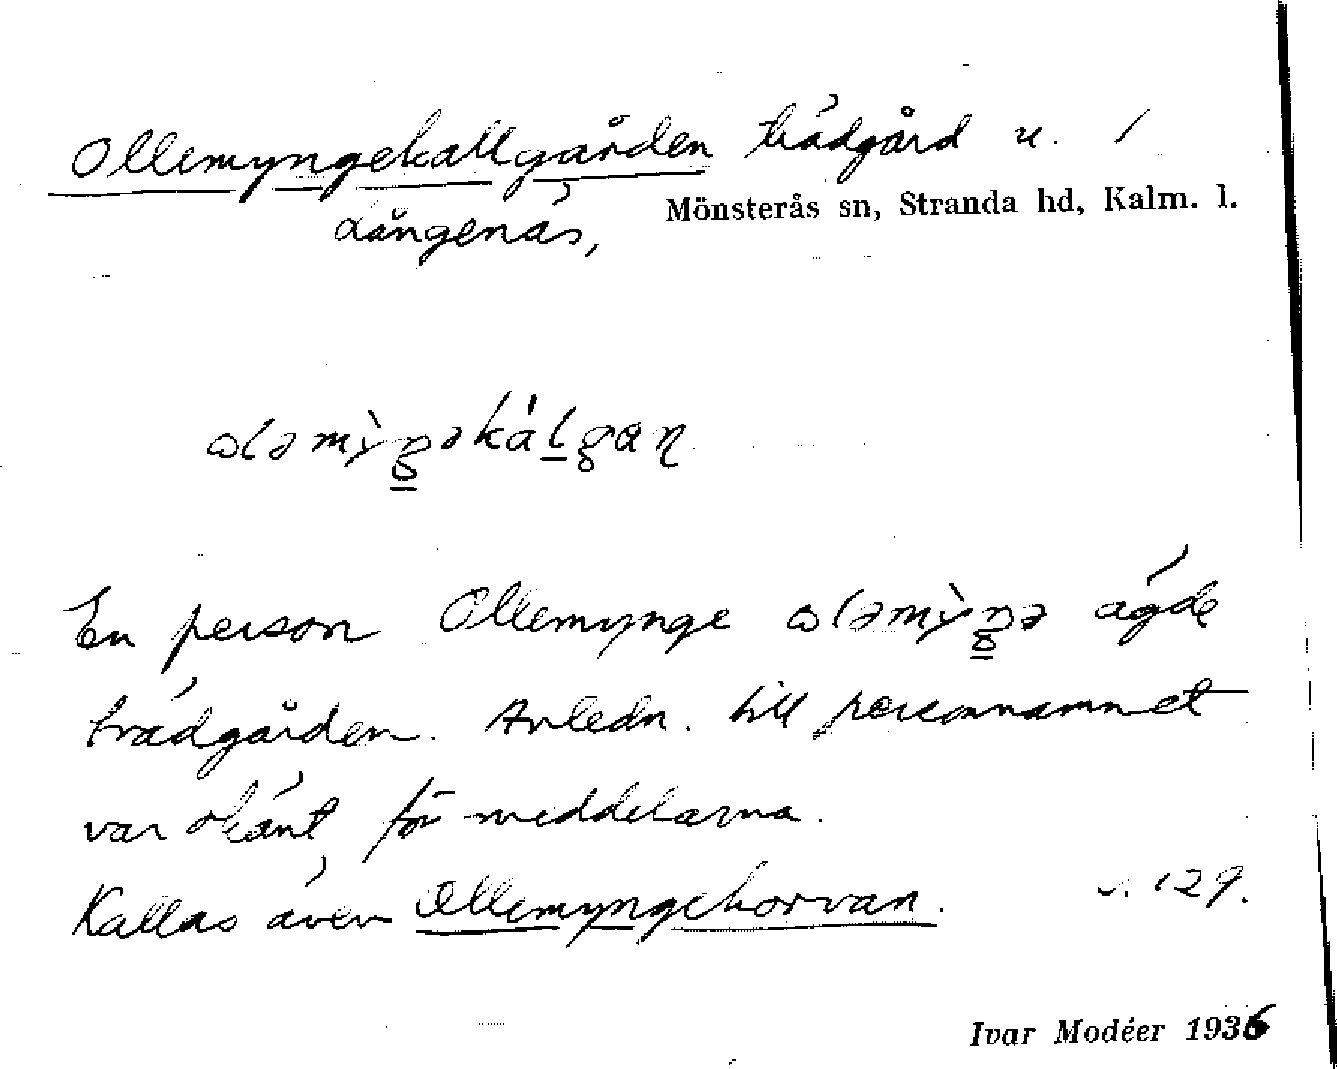 Ollemyngekallgården trädgård u. 1
Långenäs, Mönsterås sn, Stranda hd, Kalm. l.
En person Ollemynge ägde
trädgården. Anledn. till personnamnet
var okänt för meddelarna.
Kallas även Ollemyngehorvan. s. 129.
Ivar Modéer 1936